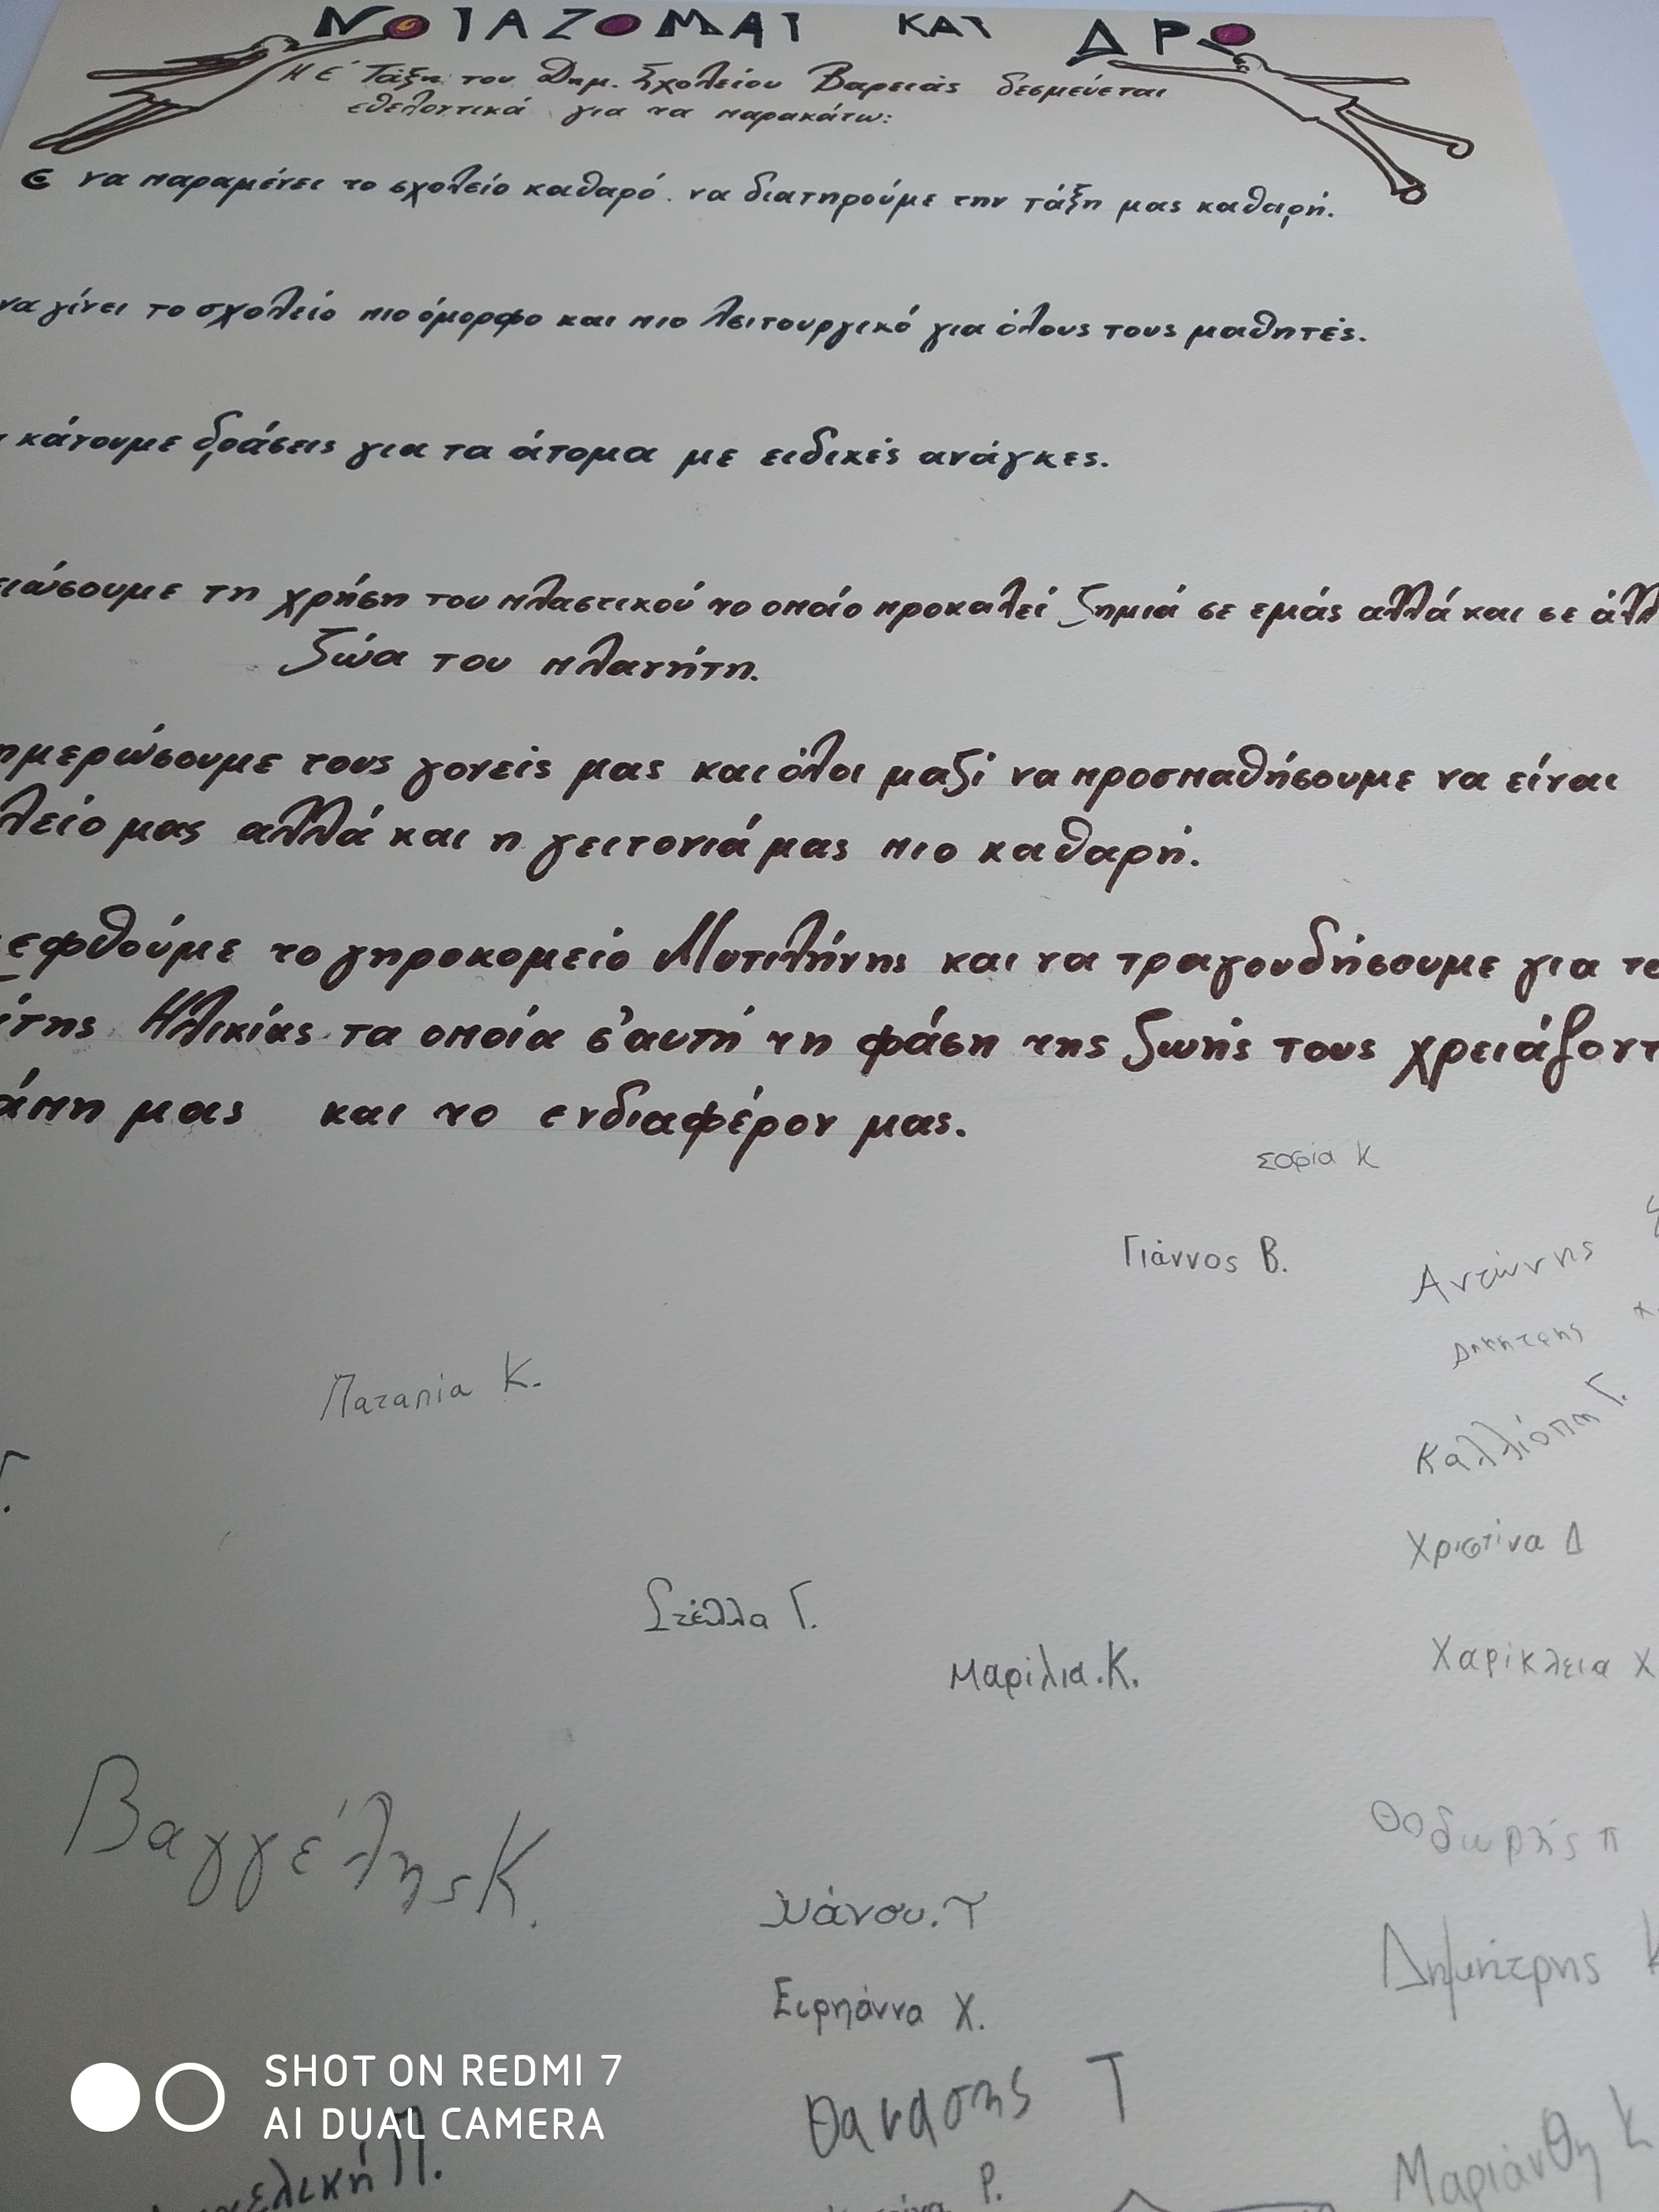 ΝΟΙΑΖΟΜΑΙ ΚΑΙ ΔΡΩ
Η Ε' Τάξη του Δημ. Σχολείου Βαρειάς δεσμεύεται
εθελοντικά για τα παρακάτω:
να παραμένει το σχολείο καθαρό. να διατηρούμε την τάξη μας καθαρή.
να γίνει το σχολείο πιο όμορφο και πιο λειτουργικό για όλους τους μαθητές.
κάνουμε δράσεις για τα άτομα με ειδικές ανάγκες.
ειώσουμε τη χρήση του πλαστικού το οποίο προκαλεί ζημιά σε εμάς αλλά και σε άλλ
ζώα του πλανήτη.
ημερώσουμε τους γονείς μας και όλοι μαζί να προσπαθήσουμε να είναι
λείο μας αλλά και η γειτονιά μας πιο καθαρή.
εφθούμε το γηροκομείο Μυτιλήνης και να τραγουδήσουμε για τα
ίτης Ηλικίας τα οποία σ'αυτή τη φάση της ζωής τους χρειάζοντ
άπη μας και το ενδιαφέρον μας.
Σοφία Κ
Γιάννος Β.
Αντώνης
Δημήτρης
Παταπία Κ.
Καλλιόπη Γ.
Γ.
Χριστίνα Δ
Στέλλα Γ.
Μαρίλια.Κ.
Χαρίκλεια Χ
Βαγγέλης Κ.
Θοδωρής Π
Νάνσυ.Τ
Δημήτρης Κ
Ειρηάννα Χ.
SHOT ON REDMI 7
AI DUAL CAMERA
Θανάσης Τ
Μαριάνθη Κ
ελική Π.
Ρ.